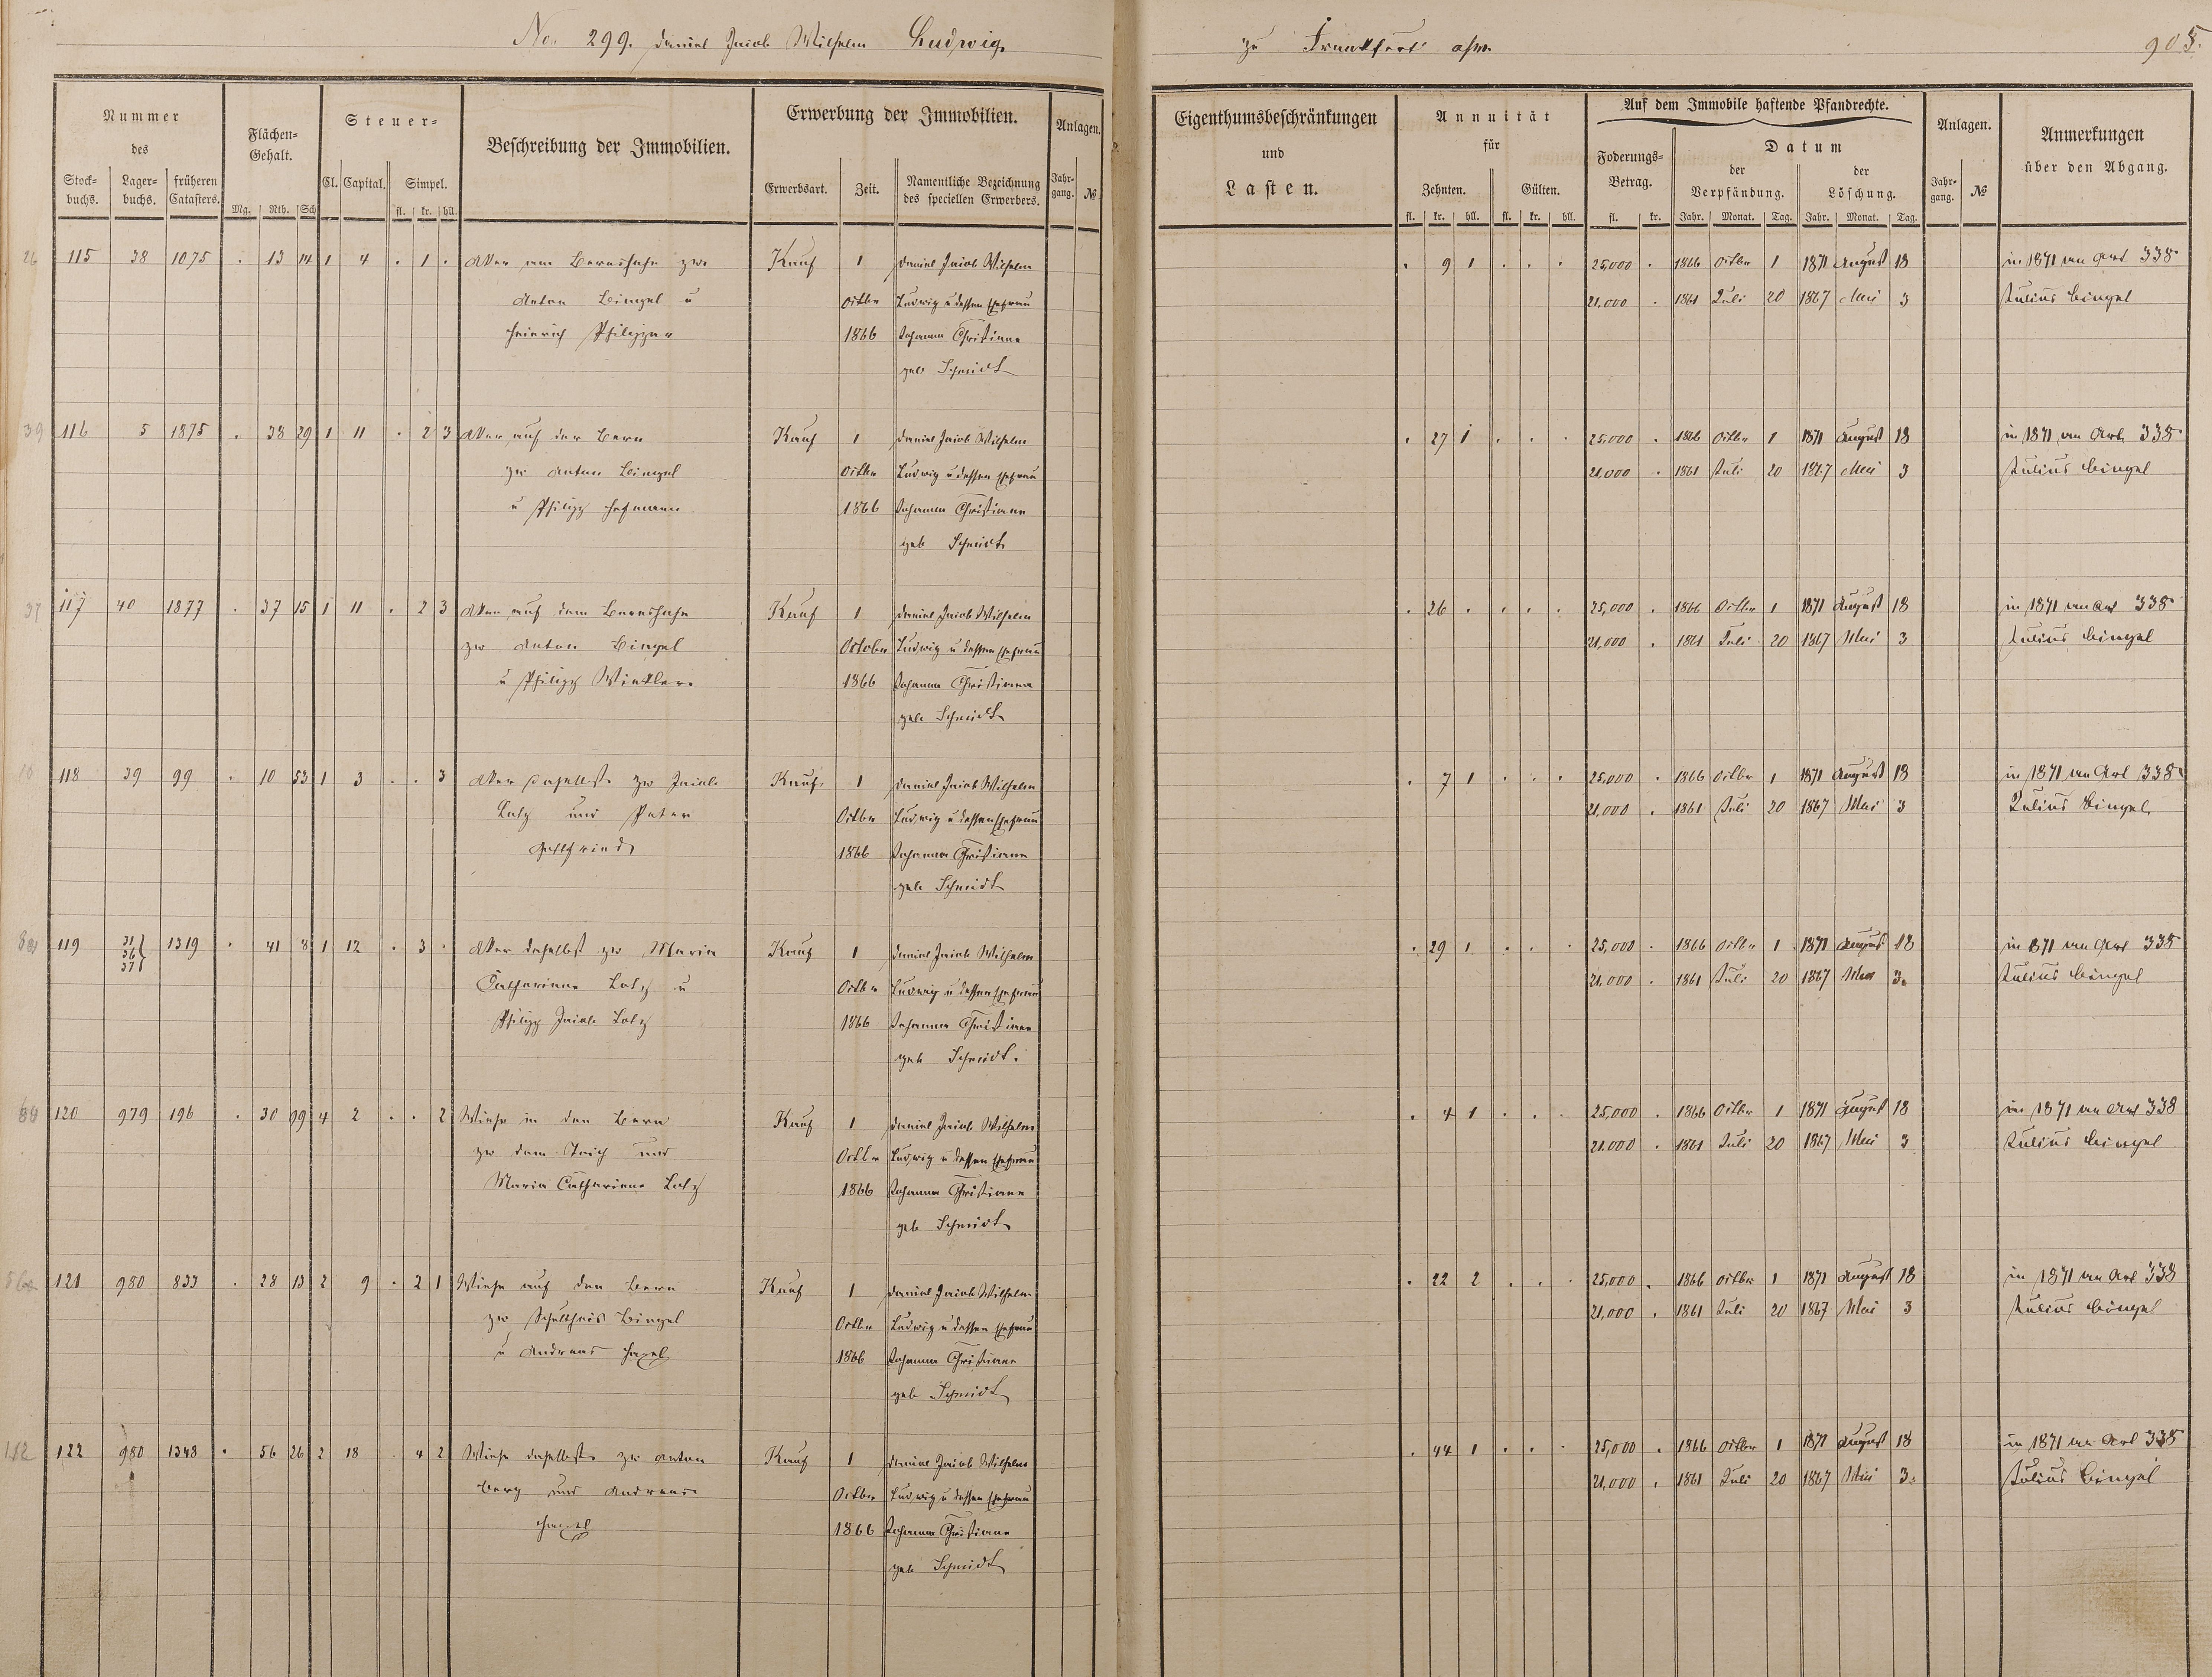 No. 299. Daniel Jacob Wilhelm Ludwig zu Frankfurt a/m. 905.
Nummer des
Stock-buchs. Lager-buchs. früheren Catasters.
Flächen-Gehalt.
Mg. Rth. Sch
Steuer-
Cl. Capital. Simpel.
fl. kr. hll.
Beschreibung der Immobilien.
Erwerbung der Immobilien.
Erwerbsart. Zeit. Namentliche Bezeichnung des speciellen Erwerbers.
Anlagen.
Jahr-gang. №
Eigenthumsbeschränkungen
und
Lasten.
Annuität
für
Zehnten. Gülten.
fl. kr. hll. fl. kr. hll.
Auf dem Immobile haftende Pfandrechte.
Foderungs-Betrag.
fl. kr.
Datum
der Verpfändung. der Löschung.
Jahr. Monat. Tag. Jahr. Monat. Tag.
Anlagen.
Jahr-gang. №
Anmerkungen
über den Abgang.
26 115 38 1075 . 13 14 1 4 . 1 . Acker am zw. Kauf 1 Daniel Jacob Wilhelm . 9 1 . . . 25,000 . 1866 Octbr 1 1871 August 18 in 1871 an Art 338
Anton Bingel u Octbr Ludwig u dessen Ehefrau 21,000 . 1861 Juli 20 1867 Mai 3 Julius Bingel
Heinrich Philippar 1866 Johanna Christiane
geb Schmidt
39 116 5 1875 . 38 29 1 11 . 2 3 Acker auf der Bern Kauf 1 Daniel Jacob Wilhelm . 27 1 . . . 25,000 . 1866 Octbr 1 1871 August 18 in 1871 an Art. 338
zw Anton Bingel Octbr Ludwig u dessen Ehefrau 21,000 . 1861 Juli 20 1867 Mai 3 Julius Bingel
u Philipp Hofmann 1866 Johanna Christiane
geb Schmidt
37 117 40 1877 . 37 15 1 11 . 2 3 Acker auf dem Kauf 1 Daniel Jacob Wilhelm . 26 . . . . 25,000 . 1866 Octbr 1 1871 August 18 in 1871 an Art 338
zw Anton Bingel October Ludwig u dessen Ehefrau 21,000 . 1861 Juli 20 1867 Mai 3 Julius Bingel
u Philipp Winkler. 1866 Johanna Christiane
geb Schmidt
10 118 39 99 . 10 53 1 3 . . 3 Acker daselbst zw Jacob Kauf 1 Daniel Jacob Wilhelm . 7 1 . . . 25,000 . 1866 Octbr 1 1871 August 18 in 1871 an Art 338
Lotz und Peter Octbr Ludwig u dessen Ehefrau 21,000 . 1861 Juli 20 1867 Mai 3 Julius Bingel
Gottfried 1866 Johanna Christiane
geb Schmidt
119 31 36 37 1319 . 41 8 1 12 . 3 . Acker daselbst zw Maria Kauf 1 Daniel Jacob Wilhelm . 29 1 . . . 25,000 . 1866 Octbr 1 1871 August 18 in 1871 an Art 338
Catharina Lotz u Octbr Ludwig u dessen Ehefrau 21,000 . 1861 Juli 20 1867 Mai 3. Julius Bingel
Philipp Jacob Lotz 1866 Johanna Christiane
geb Schmidt.
120 979 196 . 30 99 4 2 . . 2 Wiese in den Bern Kauf 1 Daniel Jacob Wilhelm . 4 1 . . . 25,000 . 1866 Octbr 1 1871 August 18 in 1871 an Art 338
zw dem Teich und Octbr Ludwig u dessen Ehefrau 21,000 . 1861 Juli 20 1867 Mai 3 Julius Bingel
Maria Catharina Lotz 1866 Johanna Christiane
geb Schmidt
121 980 833 . 28 13 2 9 . 2 1 Wiese auf den Bern Kauf 1 Daniel Jacob Wilhelm . 22 2 . . . 25,000 . 1866 Octbr 1 1871 August 18 in 1871 an Art 338
zw Schultheis Bingel Octbr Ludwig u dessen Ehefrau 21,000 . 1861 Juli 20 1867 Mai 3 Julius Bingel
u Andreas Hazel 1866 Johanna Christiane
geb Schmidt
122 980 1348 . 56 26 2 18 . 4 2 Wiese daselbst zw Anton Kauf 1 Daniel Jacob Wilhelm . 44 1 . . . 25,000 . 1866 Octbr 1 1871 August 18 in 1871 an Art 338
Berg und Andreas Octbr Ludwig u dessen Ehefrau 21,000 . 1861 Juli 20 1867 Mai 3. Julius Bingel
Hazel 1866 Johanna Christiane
geb Schmidt